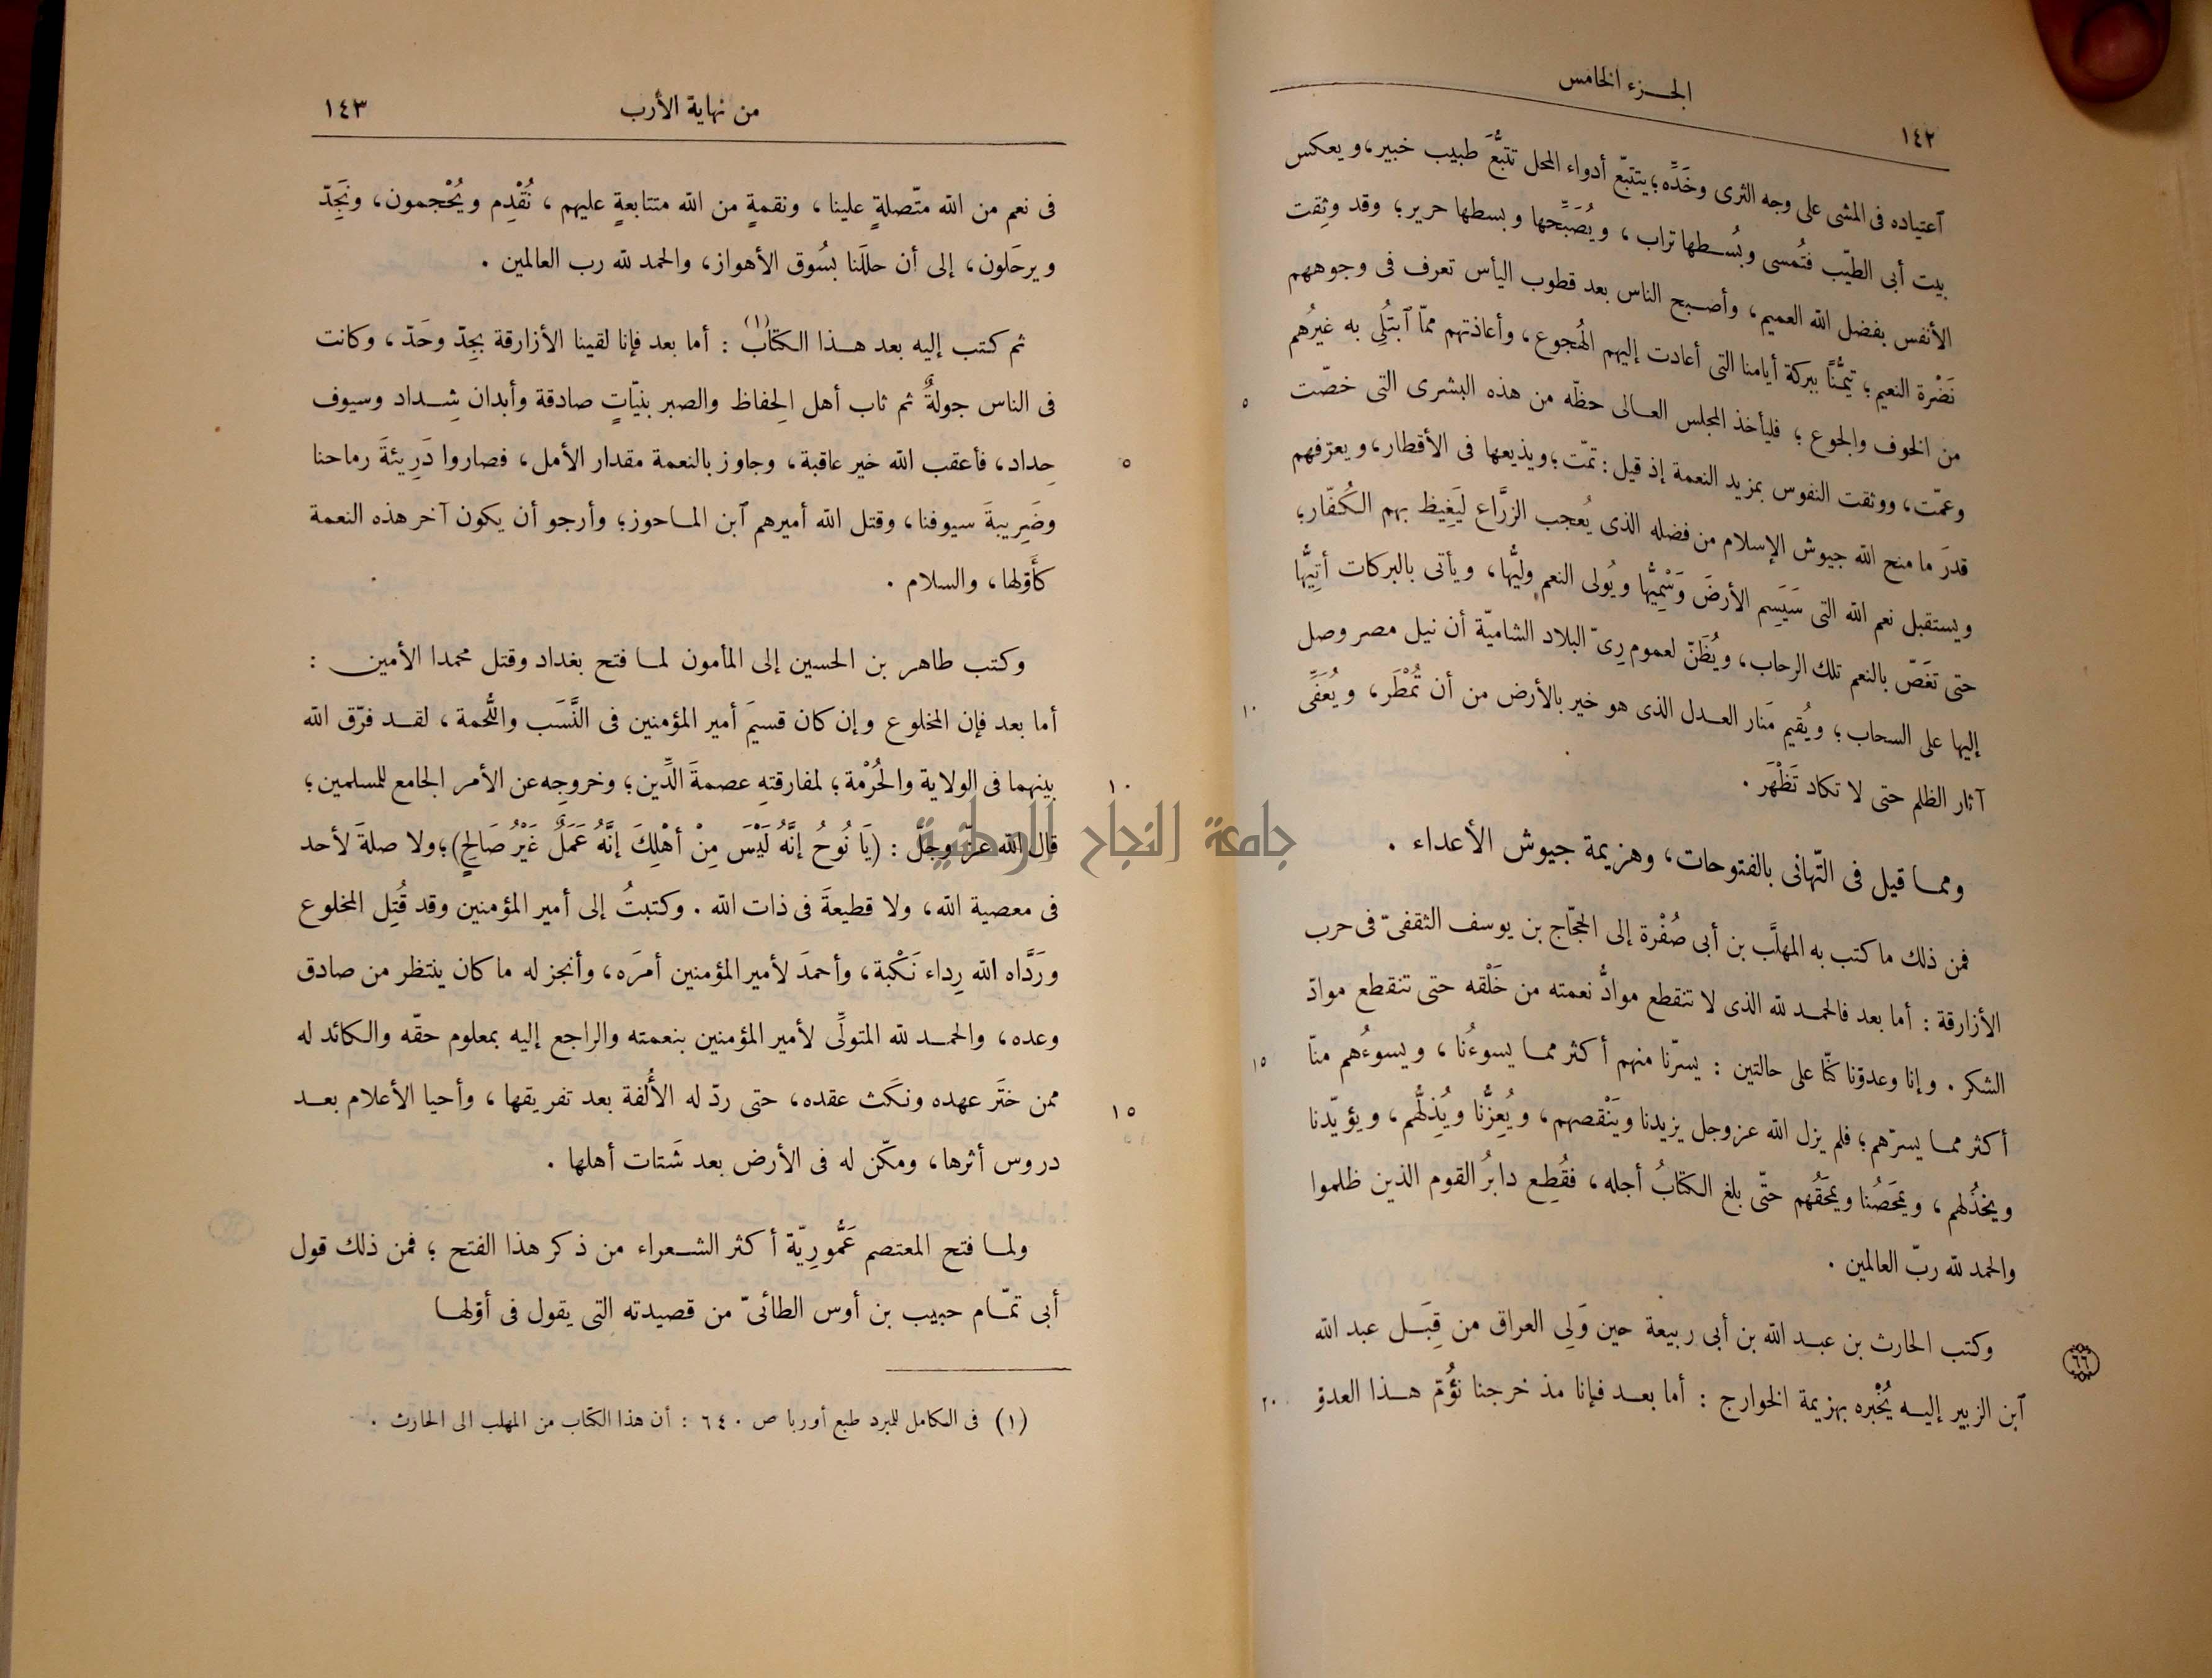 الجزء الخامس
١٤٢
ٱعتياده فى المشى على وجه الثرى وخَدِّه؛ يتتبّع أدواء المحل تتبُّعَ طبيب خبير، ويعكس
بيت أبى الطيّب فتُمسى وبُسطها تراب، ويُصَبِّحها وبسطها حرير؛ وقد وثِقت
الأنفس بفضل الله العميم، وأصبح الناس بعد قطوب اليأس تعرف فى وجوههم
نَضْرة النعيم؛ تيمُّنًا ببركة أيامنا التى أعادت إليهم الهُجوع، وأعاذتهم ممّا ٱبتُلِى به غيرُهم
من الخوف والجوع؛ فليأخذ المجلس العالى حظّه من هذه البشرى التى خصّت
٥
وعمّت، ووثقت النفوس بمزيد النعمة إذ قيل: تمّت؛ ويذيعها فى الأقطار، ويعرّفهم
قدرَ ما منح الله جيوش الإسلام من فضله الذى يُعجب الزرَّاع لِيَغِيظ بهم الكُفّار؛
ويستقبل نعم الله التى سَيَسِم الأرضَ وَسْمِيُّها ويُولى النعم وليُّها، ويأتى بالبركات أَتِيُّها
حتى تغَصّ بالنعم تلك الرحاب، ويُظَنّ لعموم رِىّ البلاد الشاميّة أن نيل مصر وصل
إليها على السحاب؛ ويُقيم مَنار العدل الذى هو خير بالأرض من أن تُمْطَر، ويُعَفِّى
١٠
آثار الظلم حتى لا تكاد تَظْهَر.
ومما قيل فى التّهانى بالفتوحات، وهزيمة جيوش الأعداء.
فمن ذلك ما كتب به المهلَّب بن أبى صُفْرة إلى الحجّاج بن يوسف الثقفىّ فى حرب
الأزارقة: أما بعد فالحمد لله الذى لا تنقطع موادُّ نعمته من خَلْقه حتى تنقطع موادّ
الشكر. وإنا وعدوّنا كنّا على حالتين: يسرّنا منهم أكثر مما يسوءُنا، ويسوءُهم منّا
١٥
أكثر مما يسرّهم؛ فلم يزل الله عز وجل يزيدنا ويَنْقصهم، ويُعِزُّنا ويُذِلُّهم، ويؤيّدنا
ويخذُلهم، ويمحَصُنا ويمحَقُهم حتّى بلغ الكتابُ أجله، فقُطِع دابرُ القوم الذين ظلموا
والحمد لله ربّ العالمين.
وكتب الحارث بن عبد الله بن أبى ربيعة حين وَلِى العراق من قِبَل عبد الله
٦٦
ٱبن الزبير إليه يُخْبره بهزيمة الخوارج: أما بعد فإنا مذ خرجنا نؤُمّ هذا العدوّ
٢٠
من نهاية الأرب
١٤٣
فى نعم من الله متّصلةٍ علينا، ونقمةٍ من الله متتابعةٍ عليهم، نُقْدِم ويُحْجمون، ونَجِدّ
ويرحَلون، إلى أن حلَلَنا بسُوق الأهواز، والحمد لله رب العالمين.
ثم كتب إليه بعد هذا الكتاب(١): أما بعد فإنا لقينا الأزارقة بجِدّ وحَدّ، وكانت
فى الناس جولةٌ ثم ثاب أهل الحِفاظ والصبر بنيّاتٍ صادقة وأبدان شِداد وسيوف
حِداد، فأعقب الله خير عاقبة، وجاوز بالنعمة مقدار الأمل، فصاروا دَرِيئةَ رماحنا
٥
وضَرِيبةَ سيوفنا، وقتل الله أميرهم ٱبن الماحوز؛ وأرجو أن يكون آخر هذه النعمة
كأوّلها، والسلام.
وكتب طاهر بن الحسين إلى المأمون لما فتح بغداد وقتل محمدا الأمين:
أما بعد فإن المخلوع وإن كان قسيمَ أمير المؤمنين فى النَّسَب واللُّحمة، لقد فرّق الله
بينهما فى الولاية والحُرْمة؛ لمفارقتهِ عصمةَ الدِّين؛ وخروجِه عن الأمر الجامع للمسلمين؛
١٠
قال الله عزّ وجلّ: (يَا نُوحُ إنَّهُ لَيْسَ مِنْ أهْلِكَ إنَّهُ عَمَلٌ غَيْرُ صَالِحٍ)؛ ولا صلةَ لأحد
جامعة النجاح الوطنية
فى معصية الله، ولا قطيعةَ فى ذات الله. وكتبتُ إلى أمير المؤمنين وقد قُتِل المخلوع
ورَدَّاه الله رِداء نَكْبة، وأحمدَ لأمير المؤمنين أمرَه، وأنجز له ما كان ينتظر من صادق
وعده، والحمد لله المتولِّى لأمير المؤمنين بنعمته والراجع إليه بمعلوم حقّه والكائد له
ممن ختَر عهده ونكَث عقده، حتى ردّ له الأُلفة بعد تفريقها، وأحيا الأعلام بعد
١٥
دروس أثرها، ومكّن له فى الأرض بعد شَتات أهلها.
ولما فتح المعتصم عَمُّورِيّة أكثر الشعراء من ذكر هذا الفتح؛ فمن ذلك قول
أبى تمّام حبيب بن أوس الطائىّ من قصيدته التى يقول فى أوّلها
(١) فى الكامل للمبرد طبع أوربا ص ٦٤٠: أن هذا الكتاب من المهلب الى الحارث.